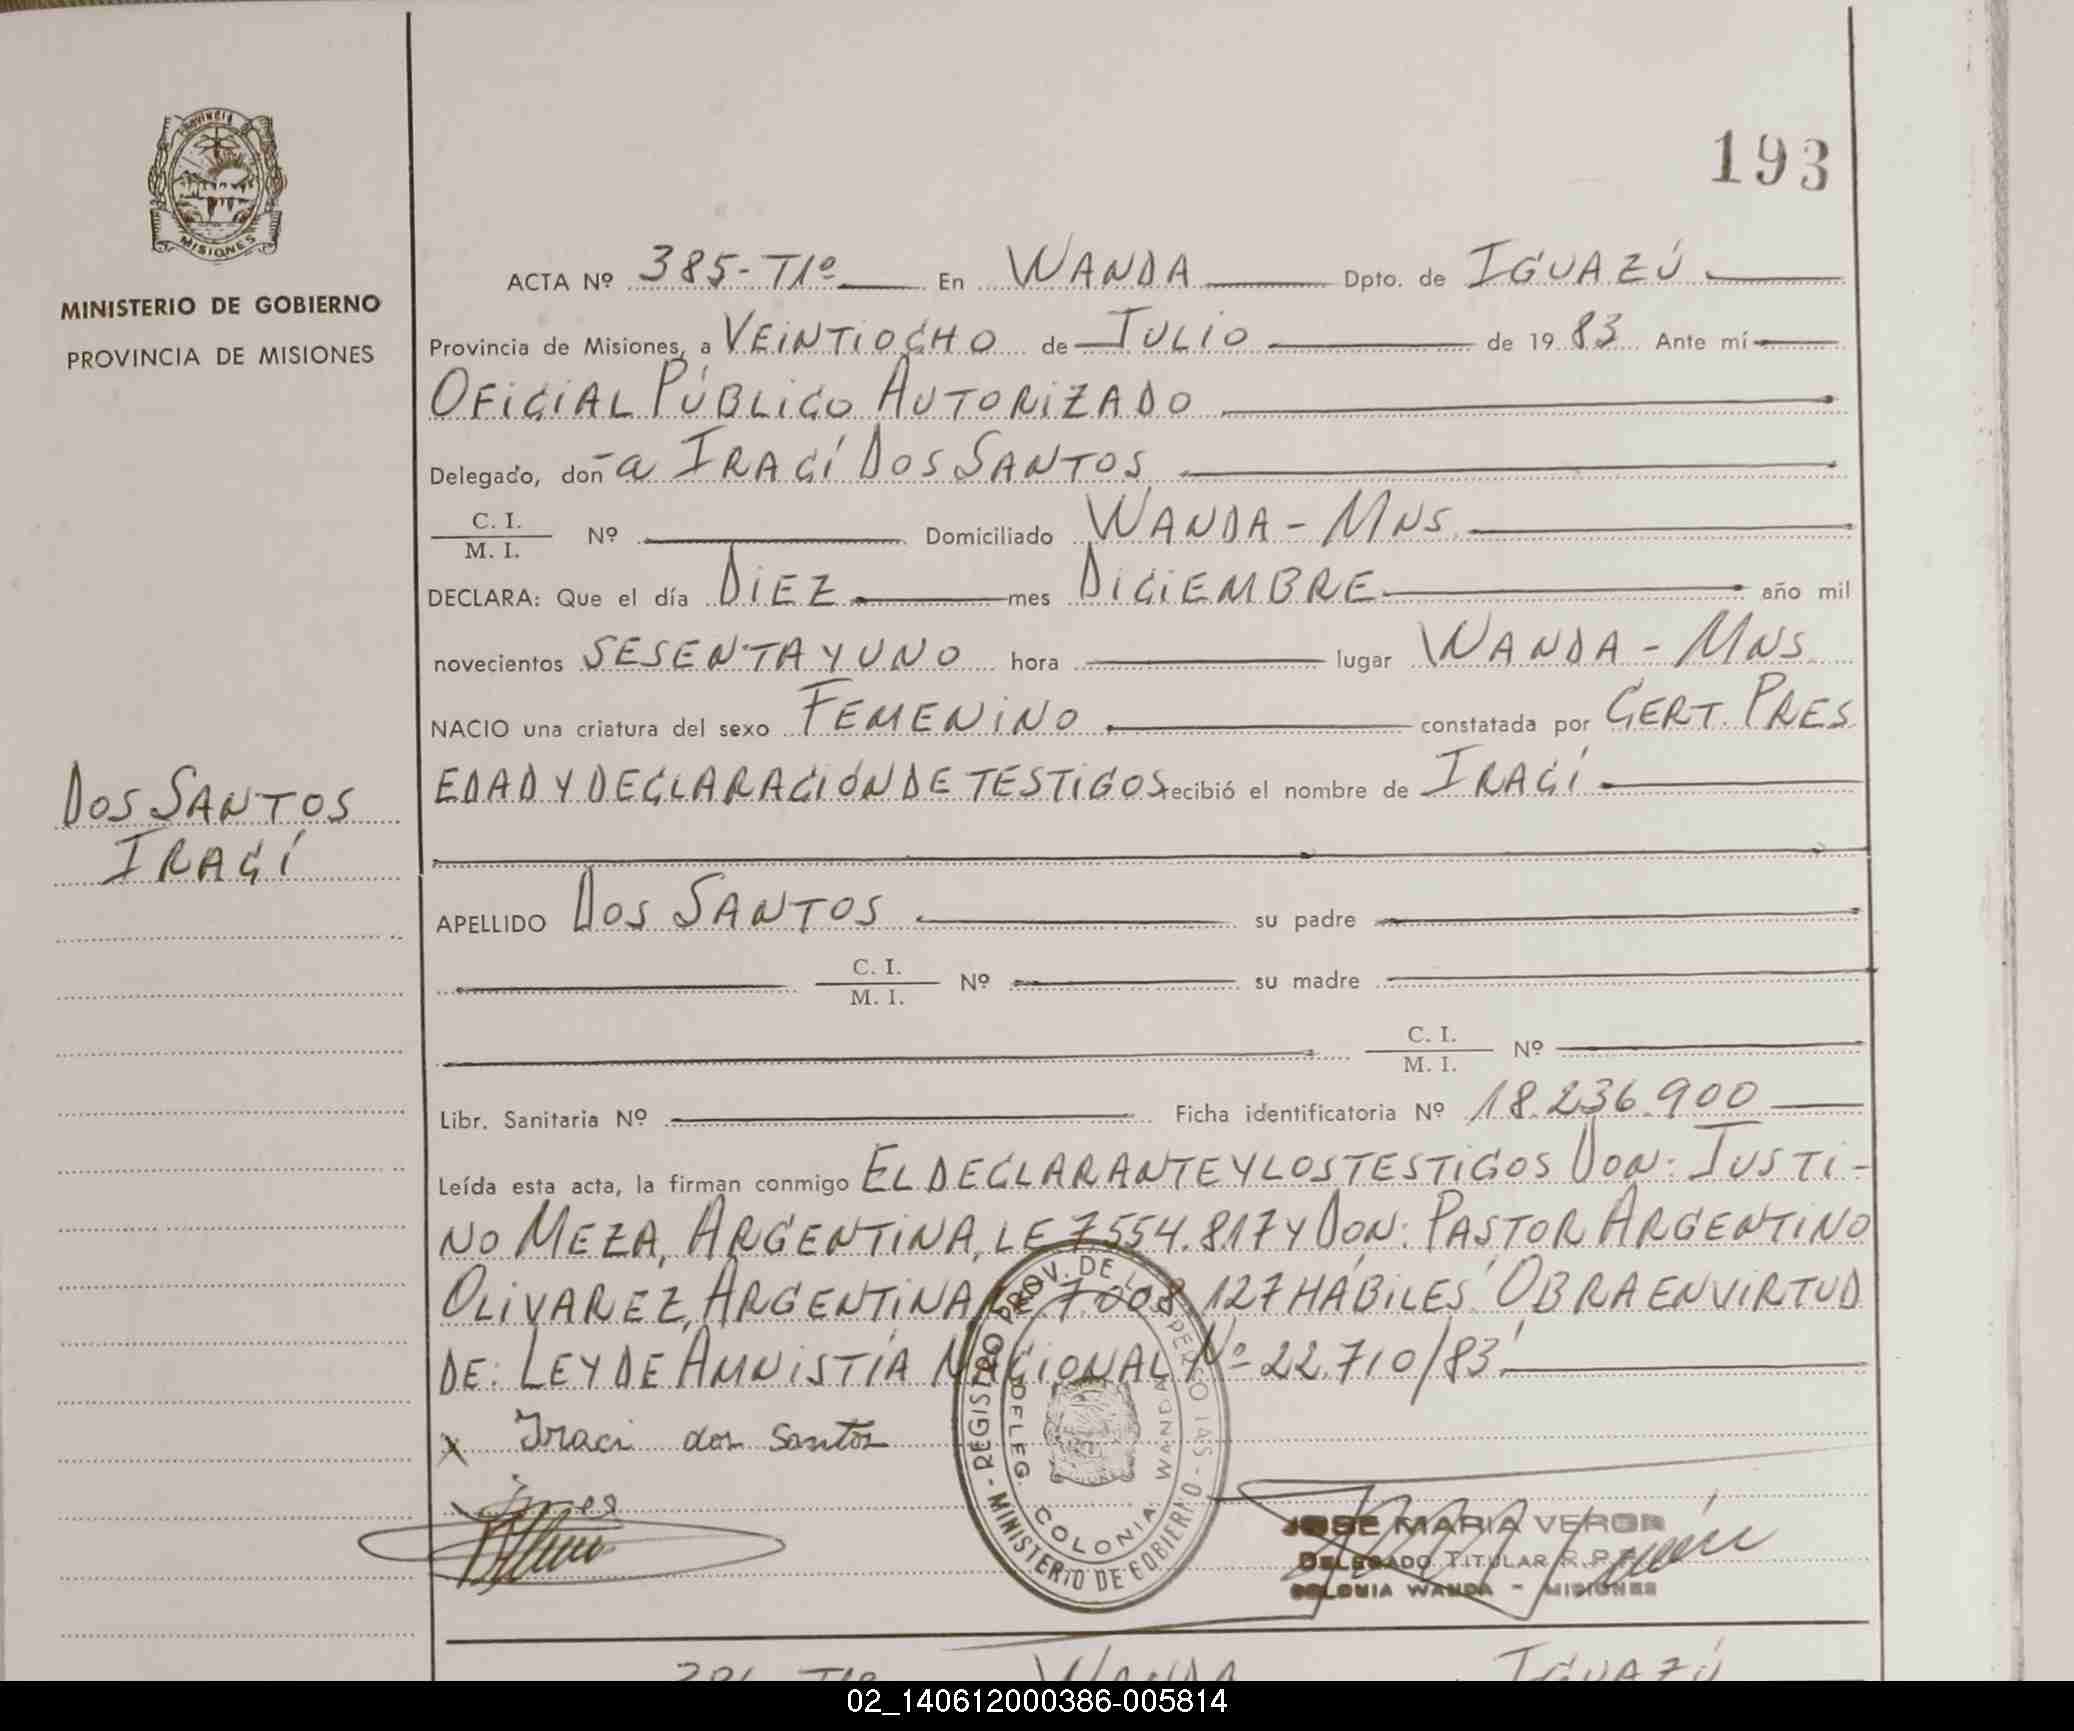 PROVINCIA
MISIONES
MINISTERIO DE GOBIERNO
PROVINCIA DE MISIONES
193
ACTA Nº 385-T1º En WANDA Dpto. de IGUAZÚ
Provincia de Misiones, a VEINTIOCHO de JULIO de 19 83 Ante mí
OFICIAL PÚBLICO AUTORIZADO
Delegado, doña IRACÍ DOS SANTOS
C. I.
M. I. Nº Domiciliado WANDA - MNS
DECLARA: Que el día DIEZ mes DICIEMBRE año mil
novecientos SESENTA Y UNO hora lugar WANDA - MNS
NACIO una criatura del sexo FEMENINO constatada por CERT. PRES
EDAD Y DECLARACIÓN DE TESTIGOS recibió el nombre de IRACÍ
DOS SANTOS
IRACÍ
APELLIDO DOS SANTOS su padre
C. I.
M. I. Nº su madre
C. I.
M. I. Nº
Libr. Sanitaria Nº Ficha identificatoria Nº 18.236.900
Leída esta acta, la firman conmigo EL DECLARANTE Y LOS TESTIGOS DON: JUSTI-
NO MEZA, ARGENTINA, LE 7.554.817 Y DON: PASTOR ARGENTINO
OLIVAREZ, ARGENTINA, LE 7.008.127 HÁBILES "OBRA EN VIRTUD
DE: LEY DE AMNISTÍA NACIONAL Nº 22.710/83"
X Iraci dos Santos
REGISTRO PROV. DE LAS PERSONAS - MINISTERIO DE GOBIERNO -
DELEG. COLONIA WANDA
JOSE MARIA VERON
DELEGADO TITULAR R.P.P.
COLONIA WANDA - MISIONES
WANDA IGUAZÚ
02_140612000386-005814